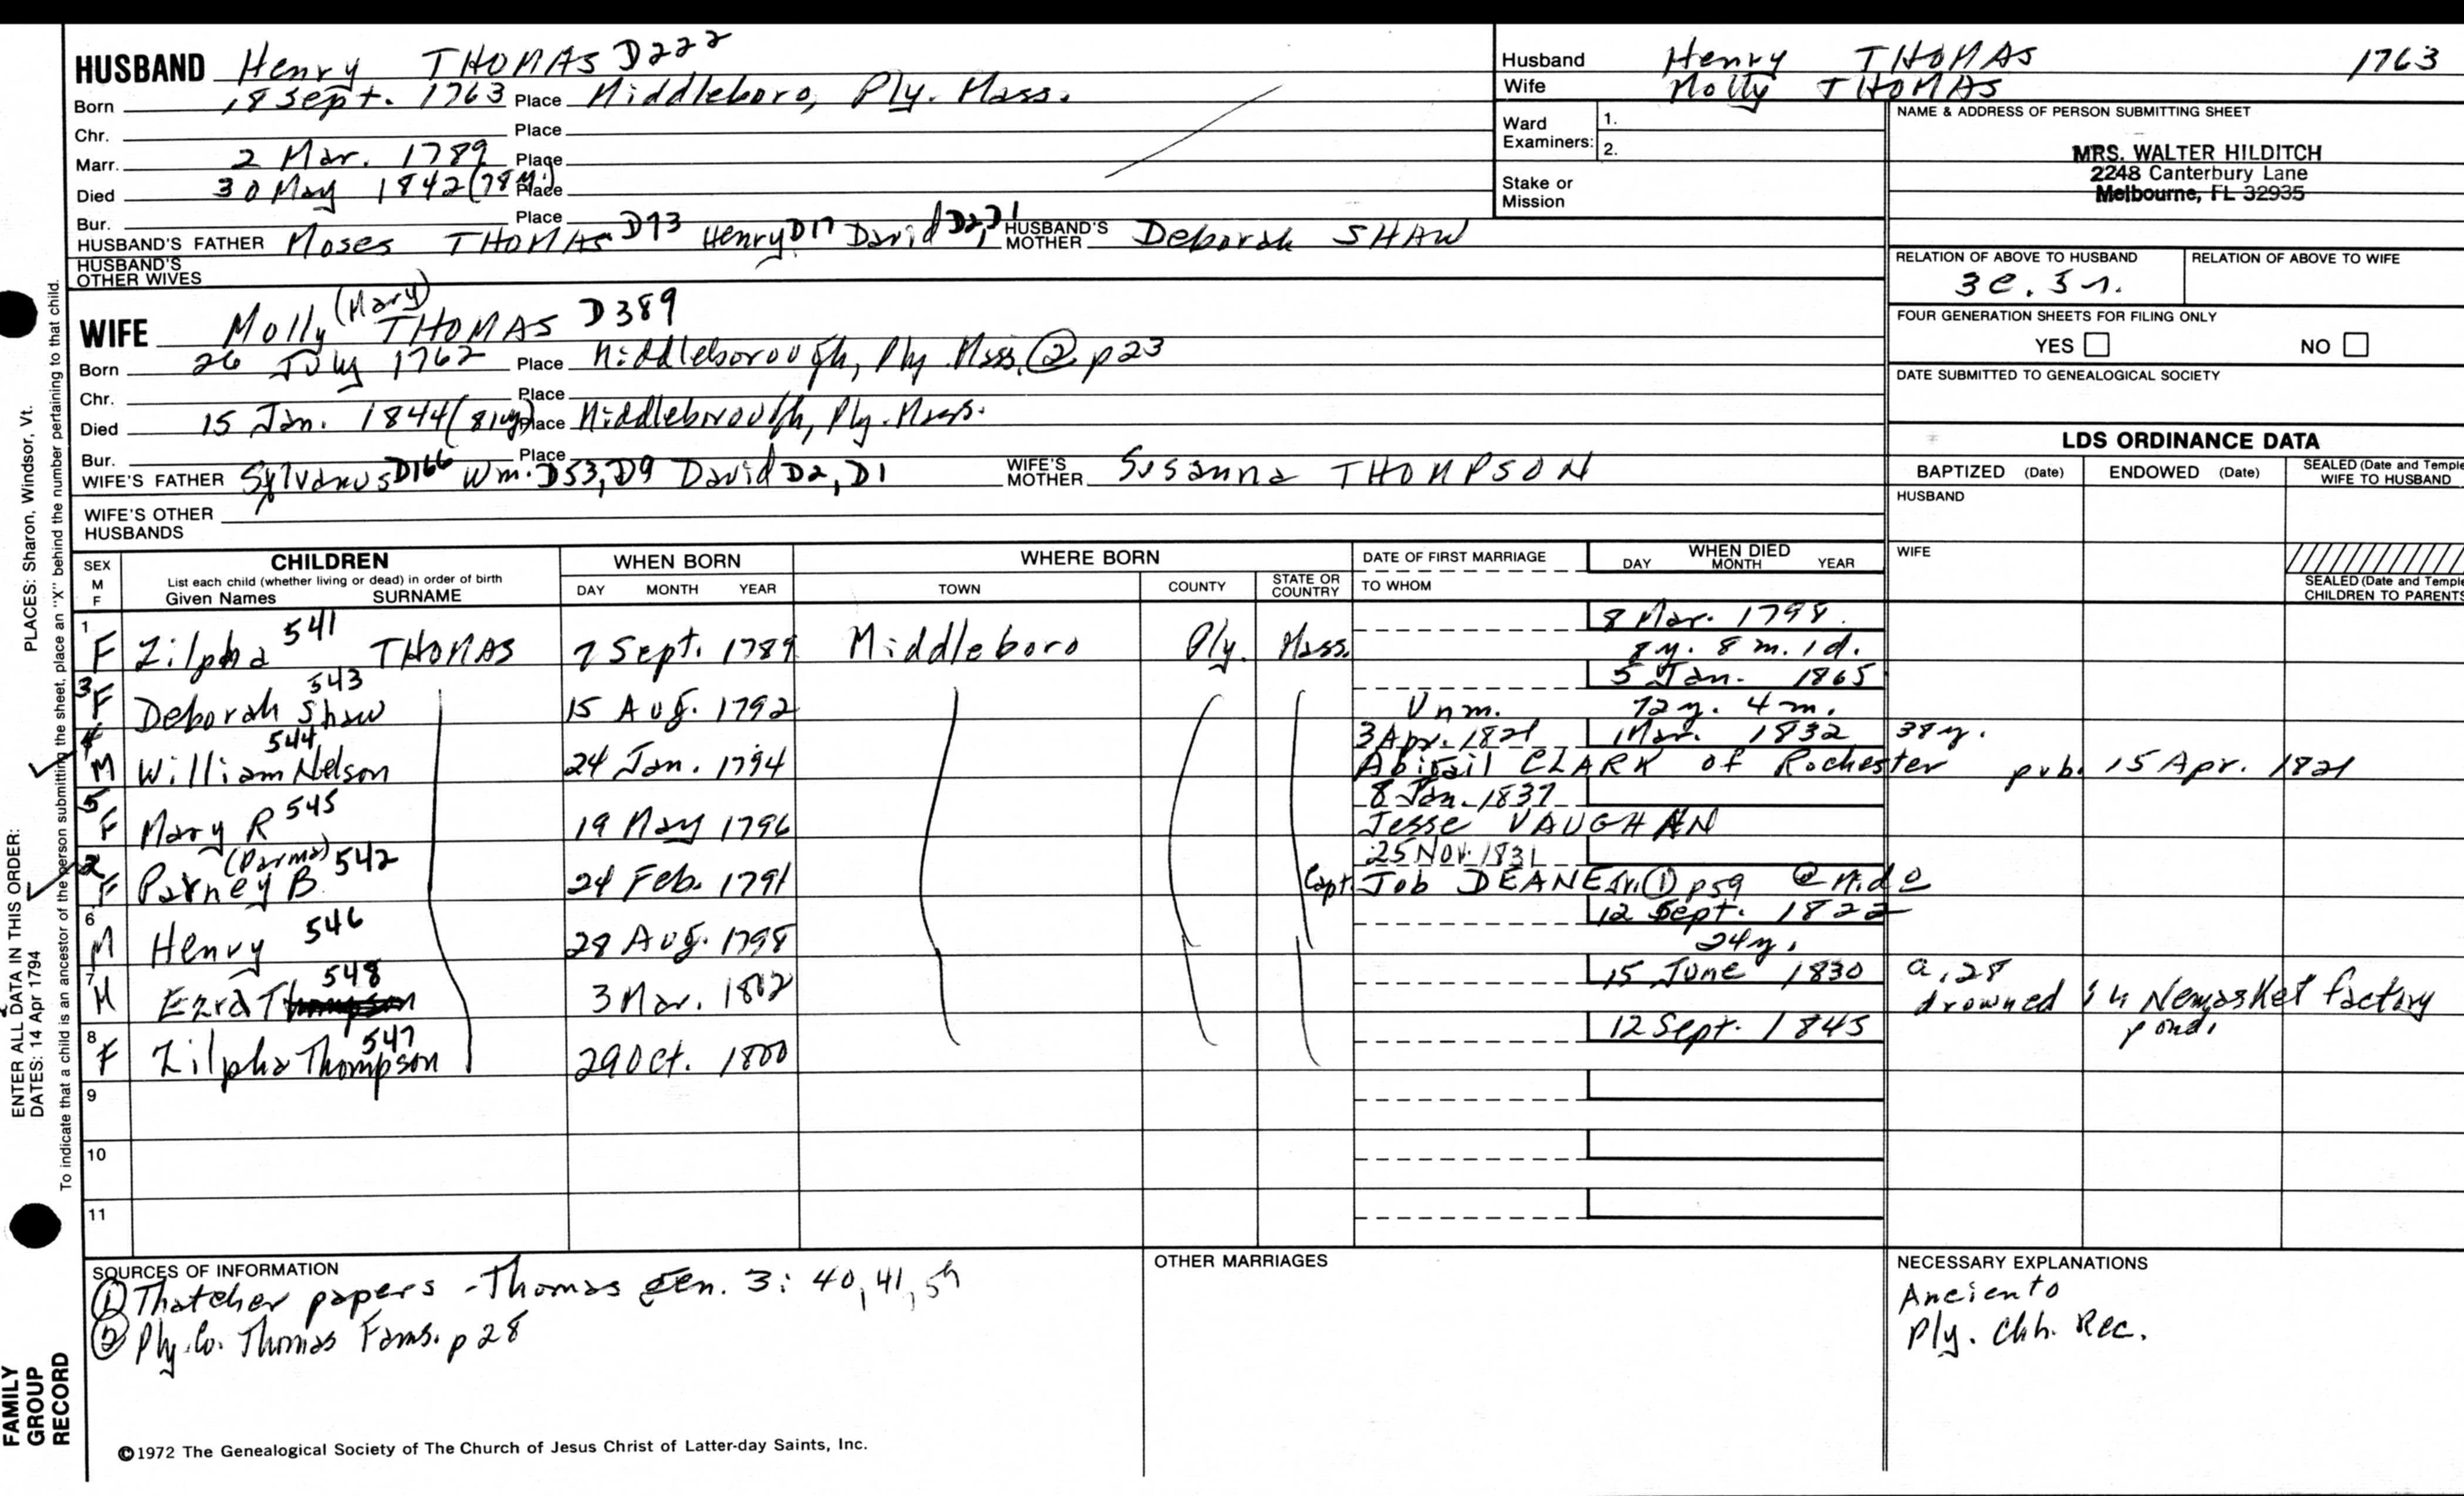 HUSBAND Henry THOMAS D222
Born 18 Sept. 1763 Place Middleboro, Ply. Mass.
Chr. Place
Marr. 2 Mar. 1789 Place
Died 30 May 1842 (78 y.) Place
Bur. Place
HUSBAND'S FATHER Moses THOMAS D73 Henry D17 David D2, D1 HUSBAND'S MOTHER Deborah SHAW
HUSBAND'S OTHER WIVES
Husband Henry THOMAS 1763
Wife Molly THOMAS
Ward Examiners: 1.
2.
Stake or Mission
NAME & ADDRESS OF PERSON SUBMITTING SHEET
MRS. WALTER HILDITCH
2248 Canterbury Lane
Melbourne, FL 32935
RELATION OF ABOVE TO HUSBAND RELATION OF ABOVE TO WIFE
3c. 5r.
FOUR GENERATION SHEETS FOR FILING ONLY
YES NO
DATE SUBMITTED TO GENEALOGICAL SOCIETY
(Mary)
WIFE Molly THOMAS D389
Born 26 July 1762 Place Middleborough, Ply. Mass. ② p23
Chr. Place
Died 15 Jan. 1844 (81y) Place Middleborough, Ply. Mass.
Bur. Place
WIFE'S FATHER Sylvanus D166 Wm. D53, D9 David D2, D1 WIFE'S MOTHER Susanna THOMPSON
WIFE'S OTHER HUSBANDS
LDS ORDINANCE DATA
BAPTIZED (Date) ENDOWED (Date) SEALED (Date and Temple WIFE TO HUSBAND
HUSBAND
WIFE
SEALED (Date and Temple CHILDREN TO PARENTS
SEX M F CHILDREN WHEN BORN WHERE BORN DATE OF FIRST MARRIAGE WHEN DIED
List each child (whether living or dead) in order of birth
Given Names SURNAME DAY MONTH YEAR TOWN COUNTY STATE OR COUNTRY TO WHOM DAY MONTH YEAR
1 541 8 Mar. 1798.
F Zilpha THOMAS 7 Sept. 1789 Middleboro Ply. Mass. 8 y. 8 m. 1 d.
3 543 5 Jan. 1865
F Deborah Shaw 15 Aug. 1792 Unm. 72 y. 4 m.
4 544 3 Apr. 1821 1 Mar. 1832 38 y.
M William Nelson 24 Jan. 1794 Abigail CLARK of Rochester pub. 15 Apr. 1821
5 545 8 Jan. 1837
F Mary R 19 May 1796 Jesse VAUGHAN
2 (Parma) 542 25 Nov. 1831
F Parney B 24 Feb. 1791 Capt. Job DEANE Jr. ① p59 @ Mid o
6 546 12 Sept. 1822
M Henry 28 Aug. 1798 24 y.
7 548 15 June 1830 a. 28
M Ezra Thompson 3 Mar. 1802 drowned in Nemasket factory pond.
8 547 12 Sept. 1845
F Zilpha Thompson 29 Oct. 1800
9
10
11
SOURCES OF INFORMATION
① Thatcher papers - Thomas Gen. 3: 40, 41, 59
② Ply. Co. Thomas Fams. p 28
OTHER MARRIAGES
NECESSARY EXPLANATIONS
Ancient o
Ply. Chh. Rec.
©1972 The Genealogical Society of The Church of Jesus Christ of Latter-day Saints, Inc.
ENTER ALL DATA IN THIS ORDER:
PLACES: Sharon, Windsor, Vt.
DATES: 14 Apr 1794
To indicate that a child is an ancestor of the person submitting the sheet, place an "X" behind the number pertaining to that child.
FAMILY
GROUP
RECORD